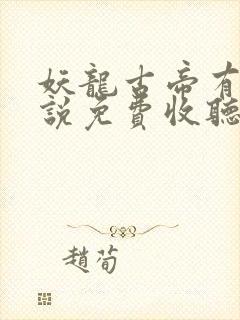 妖龍古帝有
說免費收聽
趙荀